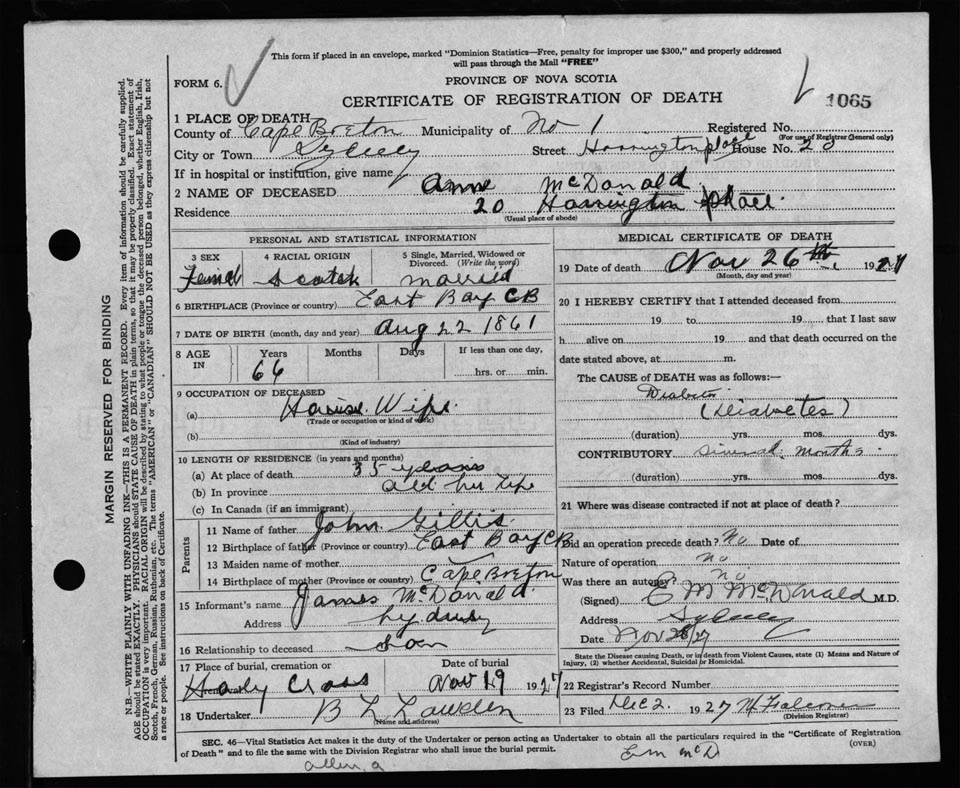 This form if placed in an envelope, marked "Dominion Statistics—Free, penalty for improper use $300," and properly addressed
will pass through the Mail "FREE"
FORM 6.
PROVINCE OF NOVA SCOTIA
CERTIFICATE OF REGISTRATION OF DEATH
1065
1 PLACE OF DEATH
County of Cape Breton Municipality of No 1 Registered No.
(For use of Registrar General only)
City or Town Sydney Street Harrington place House No. 20
If in hospital or institution, give name
2 NAME OF DECEASED Anne McDonald
Residence 20 Harrington place.
(Usual place of abode)
PERSONAL AND STATISTICAL INFORMATION
3 SEX 4 RACIAL ORIGIN 5 Single, Married, Widowed or Divorced. (Write the word)
Femal Scotch married
6 BIRTHPLACE (Province or country) East Bay CB
7 DATE OF BIRTH (month, day and year) Aug 22 1861
8 AGE IN Years Months Days If less than one day,
66 hrs. or min.
9 OCCUPATION OF DECEASED
(a) House Wife
(Trade or occupation or kind of work)
(b)
(Kind of industry)
10 LENGTH OF RESIDENCE (in years and months)
(a) At place of death 35 years
(b) In province all her life
(c) In Canada (if an immigrant)
Parents
11 Name of father John Gillis
12 Birthplace of father (Province or country) East Bay CB
13 Maiden name of mother
14 Birthplace of mother (Province or country) Cape Breton
15 Informant's name James McDonald
Address Sydney
16 Relationship to deceased Son
17 Place of burial, cremation or removal Date of burial
Holy Cross Nov 29 1927
18 Undertaker
(Name and address)
MEDICAL CERTIFICATE OF DEATH
19 Date of death Nov 26th, 1927
(Month, day and year)
20 I HEREBY CERTIFY that I attended deceased from
19 to 19 that I last saw
h alive on 19 and that death occurred on the
date stated above, at m.
The CAUSE OF DEATH was as follows:—
(Diabetes)
(duration) yrs. mos. dys.
CONTRIBUTORY several months
(duration) yrs. mos. dys.
21 Where was disease contracted if not at place of death?
Did an operation precede death? No Date of
Nature of operation no
Was there an autopsy? no
(Signed) E M McDonald M.D.
Address Sydney
Date Nov 28/27
State the Disease causing Death, or in death from Violent Causes, state (1) Means and Nature of
Injury, (2) whether Accidental, Suicidal or Homicidal.
22 Registrar's Record Number
23 Filed Dec 2. 1927
(Division Registrar)
SEC. 46—Vital Statistics Act makes it the duty of the Undertaker or person acting as Undertaker to obtain all the particulars required in the "Certificate of Registration
of Death" and to file the same with the Division Registrar who shall issue the burial permit.
(OVER)
Em McD
MARGIN RESERVED FOR BINDING
N.B.—WRITE PLAINLY WITH UNFADING INK—THIS IS A PERMANENT RECORD. Every item of information should be carefully supplied.
AGE should be stated EXACTLY. PHYSICIANS should STATE CAUSE OF DEATH in plain terms, so that it may be properly classified. Exact statement of
OCCUPATION is very important. RACIAL ORIGIN will be described by stating to what people or tongue the deceased person belonged, whether English, Irish,
Scotch, French, German, Russian, Ruthenian, etc. The terms "AMERICAN" or "CANADIAN" SHOULD NOT BE USED as they express citizenship but not
a race or people. See instructions on back of Certificate.